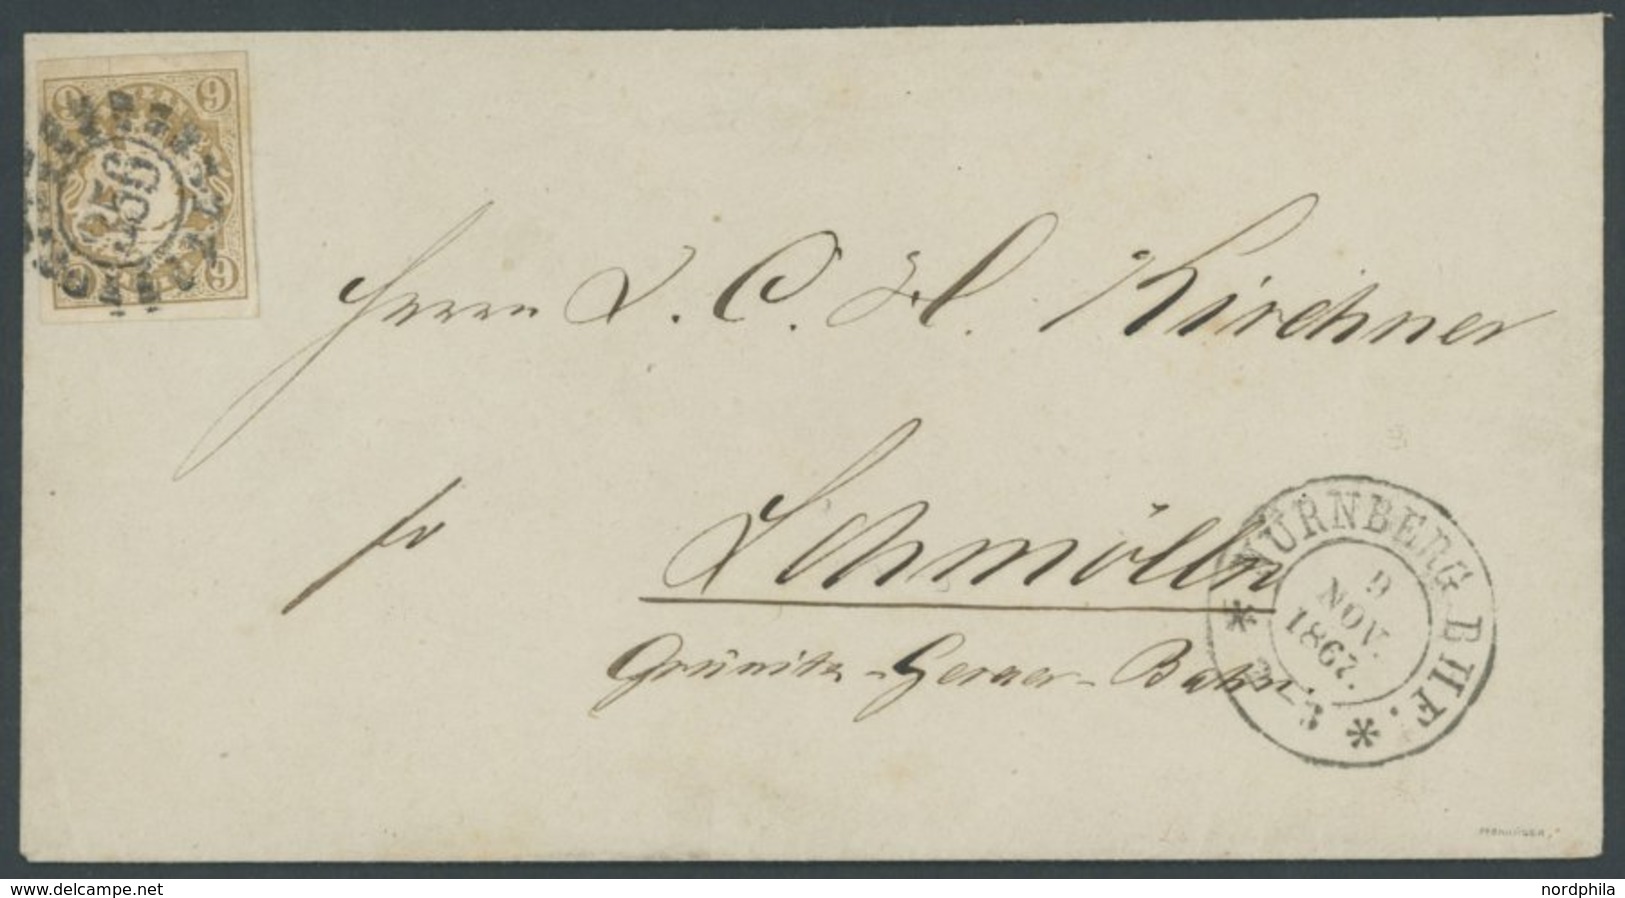 9 9
356
9 9
Herrn J. C. H. Kirchner
fr
Schmölln
Gössnitz-Geraer-Bahn.
NÜRNBERG BHF.
9
NOV.
1867.
PFENNINGER
www.delcampe.net
nordphila